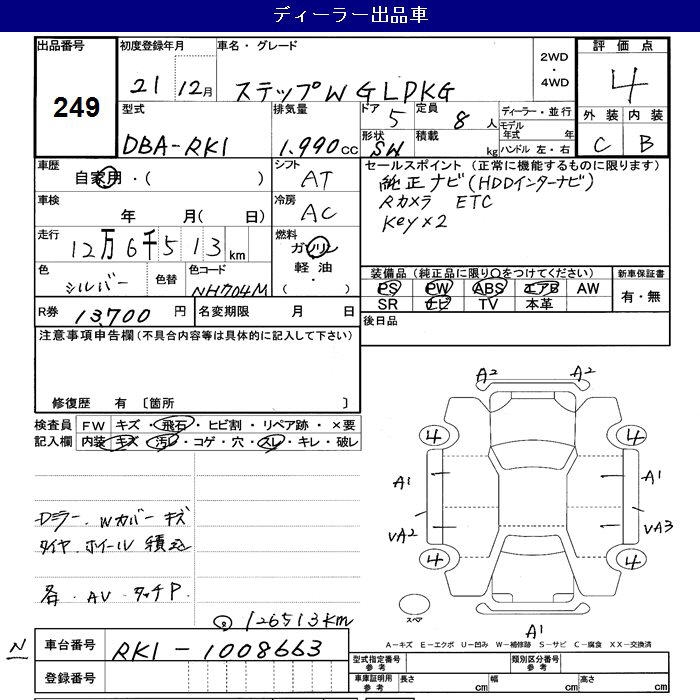 ディーラー出品車
出品番号
249
初度登録年月
21 12月
車名・グレード
ステップW G LPKG
2WD
・
4WD
評価点
4
外装 内装
C B
型式
DBA-RK1
排気量
1.990cc
ドア 5
定員 8人
形状 SW
積載 kg
ディーラー・並行
モデル年式 年
ハンドル 左・右
車歴
自家用・( )
シフト
AT
車検
年 月( 日)
冷房
AC
走行
12万6千513km
燃料
ガソリン
軽油
・( )
色
シルバー
色替
色コード
NH704M
R券 13,700円
名変期限 月 日
セールスポイント (正常に機能するものに限ります)
純正ナビ(HDDインターナビ)
Rカメラ ETC
Key×2
装備品 (純正品に限り○をつけてください)
新車保証書
PS PW ABS エアB AW
SR ナビ TV 本革
有・無
後日品
注意事項申告欄 (不具合内容等は具体的に記入して下さい)
修復歴 有 〔箇所 〕
検査員
記入欄
FW キズ・飛石・ヒビ割・リペア跡・×要
内装 キズ・汚レ・コゲ・穴・スレ・キレ・破レ
Dミラー. Wカバー キズ
タイヤ.ホイール 積込
各. AV タッチP.
126513km
A2 A2
4 4
A1 A1
VA2 VA3
4 4
スペア
A1
A-キズ E-エクボ U-凹み W-補修跡 S-サビ C-腐食 XX-交換済
N
車台番号
RK1-1008663
登録番号
型式指定番号
参考
類別区分番号
参考
車庫証明用
参考
長さ cm 幅 cm 高さ cm